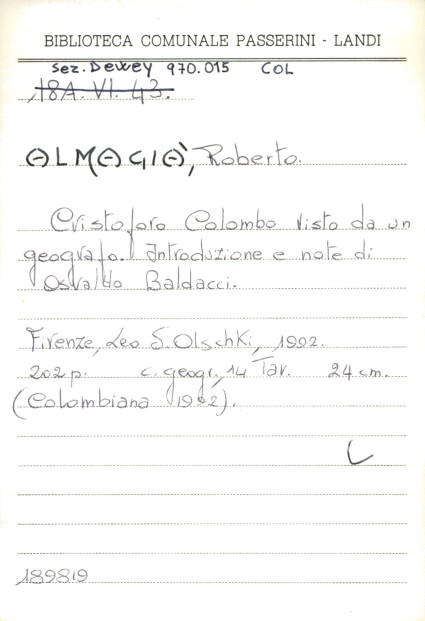 BIBLIOTECA COMUNALE PASSERINI - LANDI
Sez. Dewey 970.015 COL
18A. VI. 43.
ALMAGIÀ, Roberto.
Cristoforo Colombo visto da un
geografo. Introduzione e note di
Osvaldo Baldacci.
Firenze, Leo S. Olschki, 1992.
202 p. c. geogr., 14 Tav. 24 cm.
(Colombiana 1992).
L
189819